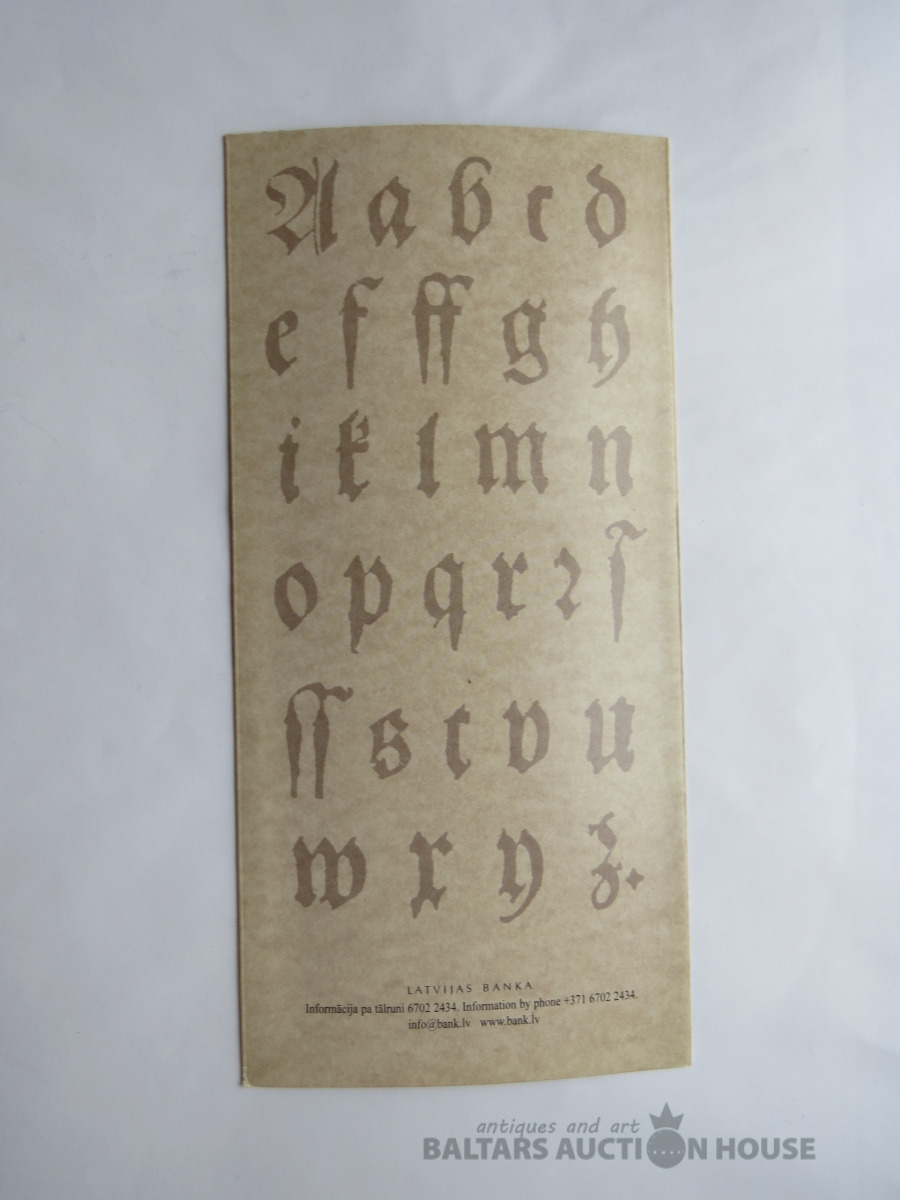 A a b c d
e f ff g h
i k l m n
o p q r ꝛ ſ
ſſ s t v u
w x y z.
LATVIJAS BANKA
Informācija pa tālruni 6702 2434. Information by phone +371 6702 2434.
info@bank.lv www.bank.lv
antiques and art
BALTARS AUCTION HOUSE